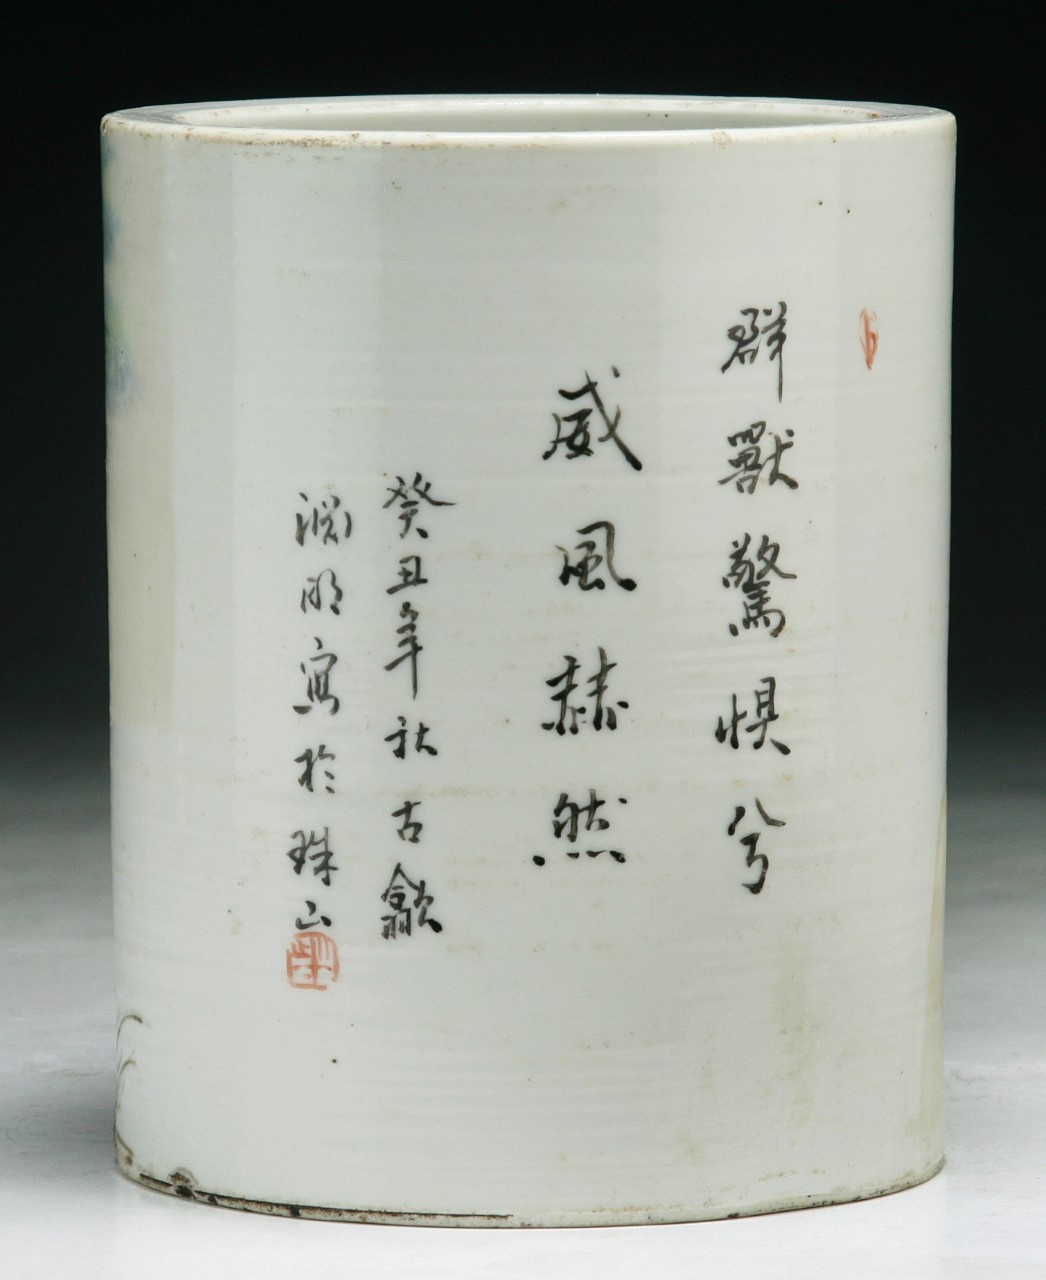 群獸驚惧兮
威風赫然
癸丑年秋古歙
淵明寫於珠山